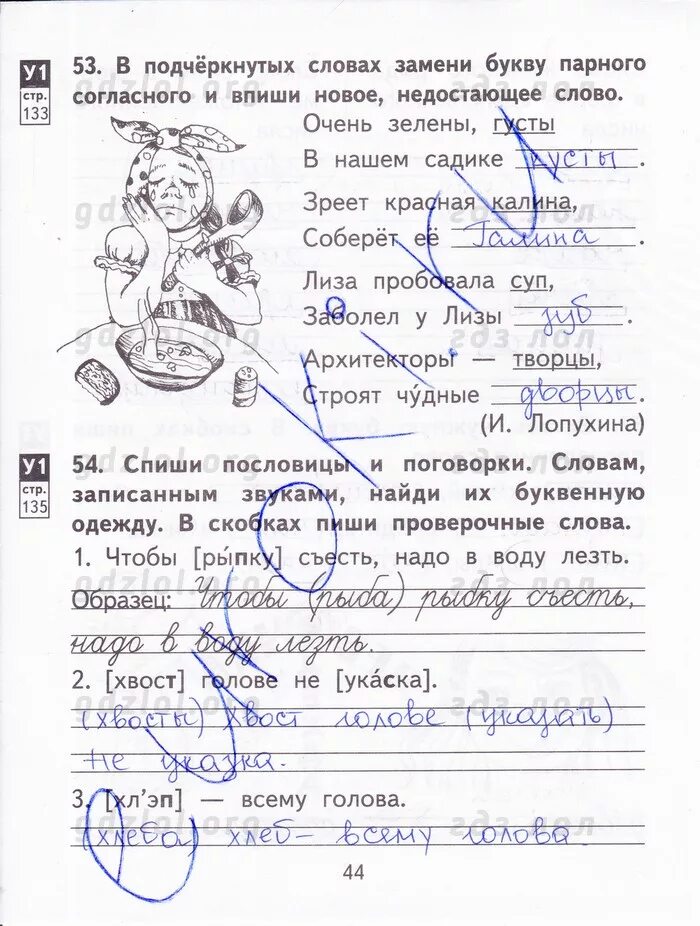 У1
стр.
133
53. В подчёркнутых словах замени букву парного
согласного и впиши новое, недостающее слово.
Очень зелены, густы
В нашем садике кусты.
Зреет красная калина,
Соберёт её Галина
Лиза пробовала суп,
Заболел у Лизы зуб.
Архитекторы — творцы,
Строят чу́дные дворцы.
(И. Лопухина)
У1
стр.
135
54. Спиши пословицы и поговорки. Словам,
записанным звуками, найди их буквенную
одежду. В скобках пиши проверочные слова.
1. Чтобы [ры́пку] съесть, надо в воду лезть.
Образец: Чтобы (рыба) рыбку съесть,
надо в воду лезть.
2. [хвост] голове не [ука́ска].
(хвосты) хвост голове (указать)
не указка.
3. [хл’эп] — всему голова.
(хлеба) хлеб – всему голова
44
gdzlol.org